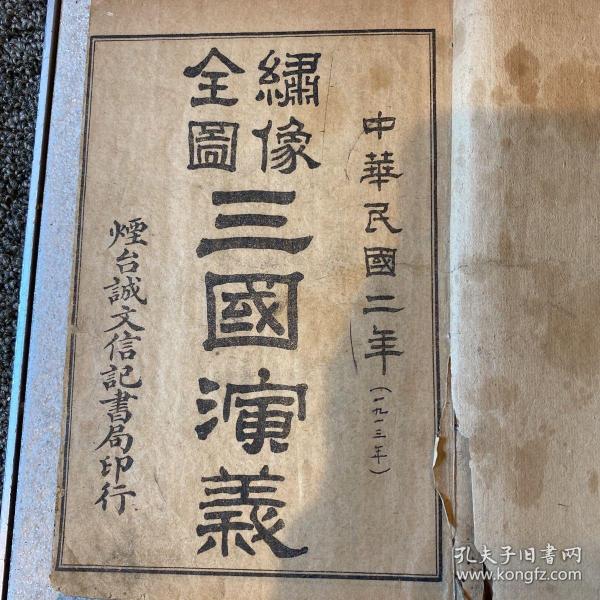 中華民國二年
(一九一三年)
繡像
全圖
三國演義
煙台誠文信記書局印行
孔夫子旧书网
www.kongfz.com